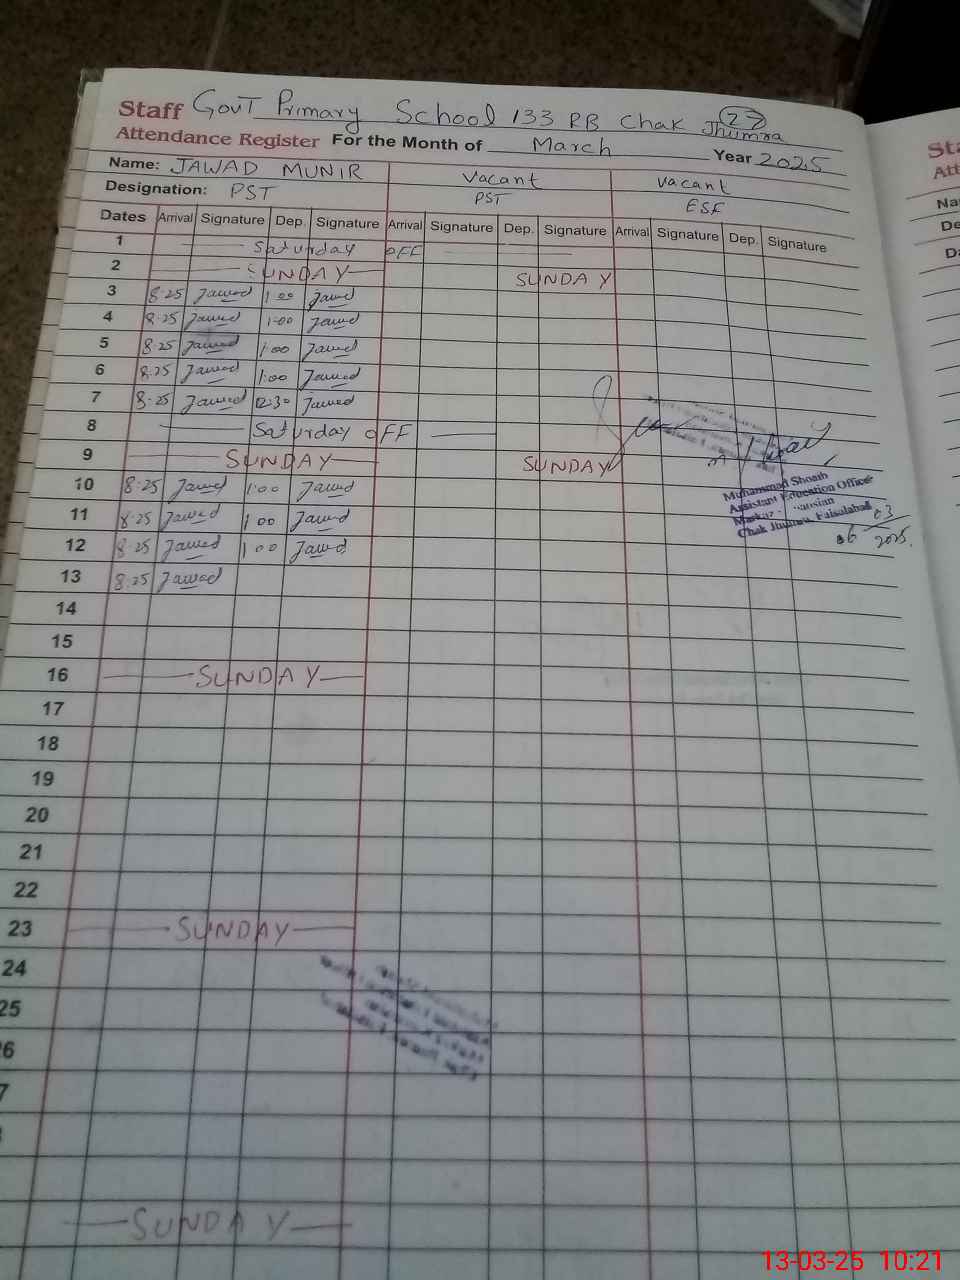 Staff GovT Primary School 133 RB Chak Jhumra 27
Attendance Register For the Month of March Year 2025
Name: JAWAD MUNIR Vacant Vacant
Designation: PST PST ESE
Dates Arrival Signature Dep. Signature Arrival Signature Dep. Signature Arrival Signature Dep. Signature
1 Saturday OFF
2 SUNDAY SUNDAY
3 8:25 Jawad 1:00 Jawad
4 8:25 Jawad 1:00 Jawad
5 8:25 Jawad 1:00 Jawad
6 8:25 Jawad 1:00 Jawad
7 8:25 Jawad 12:30 Jawad
8 Saturday OFF
9 SUNDAY SUNDAY
10 8:25 Jawad 1:00 Jawad
11 8:25 Jawad 1:00 Jawad
12 8:25 Jawad 1:00 Jawad
13 8:25 Jawad
Muhammad Shoaib
Assistant Education Officer
Markaz
Chak Jhumra, Faisalabad
06 03 2025.
14
15
16 SUNDAY
17
18
19
20
21
22
23 SUNDAY
24
25
6
7
SUNDAY
Sta
Att
Na
De
Da
13-03-25 10:21